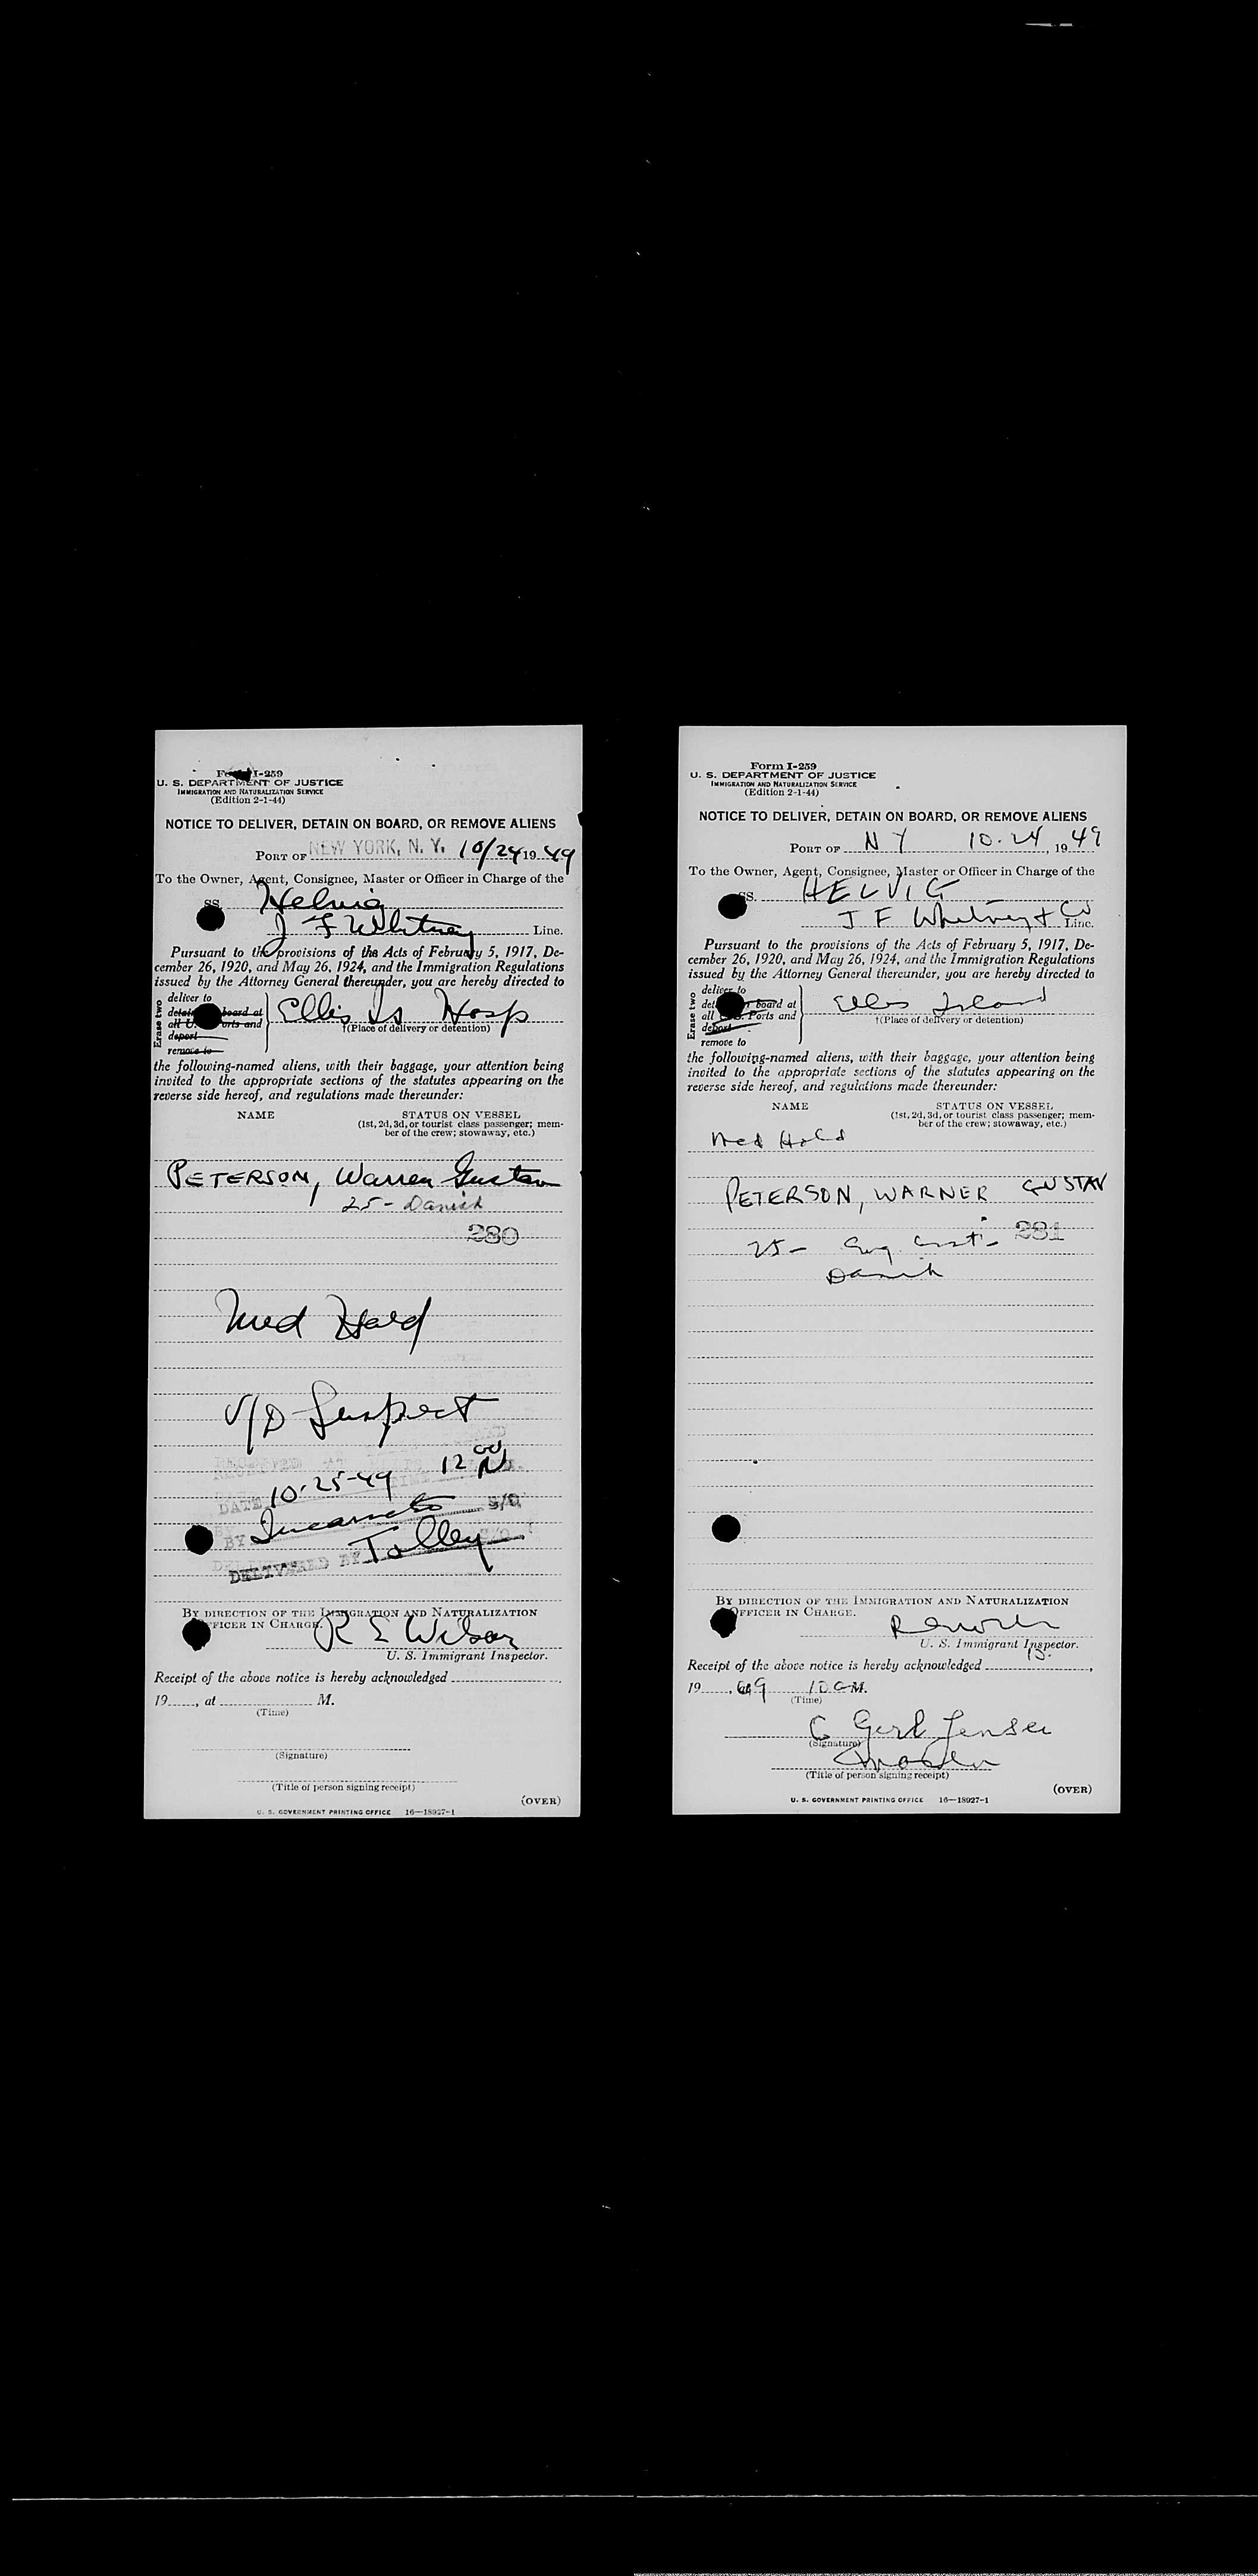 Form I-259
U. S. DEPARTMENT OF JUSTICE
IMMIGRATION AND NATURALIZATION SERVICE
(Edition 2-1-44)
NOTICE TO DELIVER, DETAIN ON BOARD, OR REMOVE ALIENS
PORT OF NEW YORK, N. Y. 10/24 1949
To the Owner, Agent, Consignee, Master or Officer in Charge of the
SS. Helvig
J F Whitney Line.
Pursuant to the provisions of the Acts of February 5, 1917, De-
cember 26, 1920, and May 26, 1924, and the Immigration Regulations
issued by the Attorney General thereunder, you are hereby directed to
Erase two
deliver to
detain board at
all U. orts and
deport
remove to
Ellis Is Hosp
†(Place of delivery or detention)
the following-named aliens, with their baggage, your attention being
invited to the appropriate sections of the statutes appearing on the
reverse side hereof, and regulations made thereunder:
NAME STATUS ON VESSEL
(1st, 2d, 3d, or tourist class passenger; mem-
ber of the crew; stowaway, etc.)
PETERSON, Warren Gustav
25 - Danish
280
Med Hold
V/D Suspect
DATE 10-25-49 TIME 12 00 N
BY S/O
DELIVERED BY Tolley
BY DIRECTION OF THE IMMIGRATION AND NATURALIZATION
FFICER IN CHARGE.
R E Wilson
U. S. Immigrant Inspector.
Receipt of the above notice is hereby acknowledged
19, at M.
(Time)
(Signature)
(Title of person signing receipt)
(OVER)
U. S. GOVERNMENT PRINTING OFFICE 16—18927-1
Form I-259
U. S. DEPARTMENT OF JUSTICE
IMMIGRATION AND NATURALIZATION SERVICE
(Edition 2-1-44)
NOTICE TO DELIVER, DETAIN ON BOARD, OR REMOVE ALIENS
PORT OF N Y 10-24, 1949
To the Owner, Agent, Consignee, Master or Officer in Charge of the
SS. HELVIG
J F Whitney & Co Line.
Pursuant to the provisions of the Acts of February 5, 1917, De-
cember 26, 1920, and May 26, 1924, and the Immigration Regulations
issued by the Attorney General thereunder, you are hereby directed to
Erase two
deliver to
det board at
all S. Ports and
deport
remove to
Ellis Island
†(Place of delivery or detention)
the following-named aliens, with their baggage, your attention being
invited to the appropriate sections of the statutes appearing on the
reverse side hereof, and regulations made thereunder:
NAME STATUS ON VESSEL
(1st, 2d, 3d, or tourist class passenger; mem-
ber of the crew; stowaway, etc.)
Med Hold
PETERSON, WARNER GUSTAV
25 - 281
Danish
BY DIRECTION OF THE IMMIGRATION AND NATURALIZATION
OFFICER IN CHARGE.
U. S. Immigrant Inspector.
Receipt of the above notice is hereby acknowledged
19 49 10 A M.
(Time)
C Gerl Jensen
(Signature)
(Title of person signing receipt)
(OVER)
U. S. GOVERNMENT PRINTING OFFICE 16—18927-1